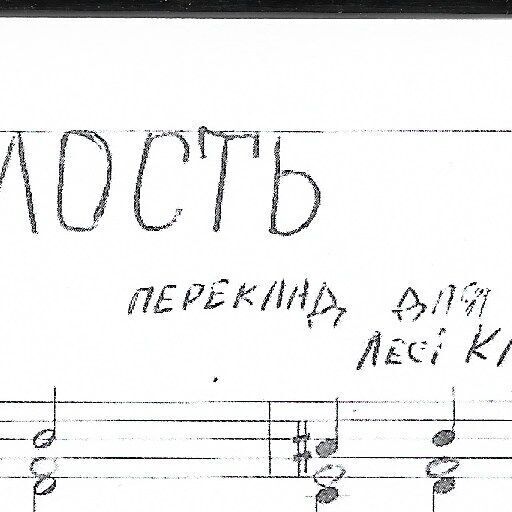 ЛОСТЬ
ПЕРЕКЛАД ДЛЯ
ЛЕСІ КЛ